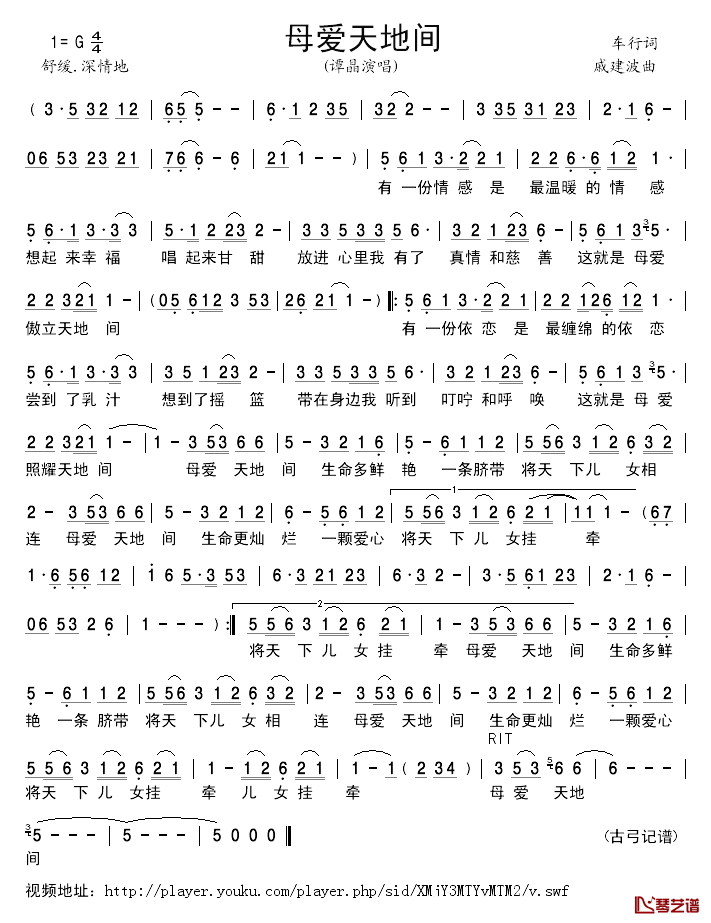 母爱天地间
1= G 4/4
车行词
舒缓.深情地
(谭晶演唱)
戚建波曲
( 3·5 32 12 | 65 5 - - | 6·1 2 35 | 32 2 - - | 3 35 31 23 | 2·1 6 - |
06 53 23 21 | 76 6 - 6 | 21 1 - - ) | 5 61 3·2 21 | 2 26·6 12 1· |
有 一份情 感 是 最温暖 的 情 感
5 6·1 3·3 3 | 5·1 2 23 2 - | 3 35 53 35 | 3 21 23· 6 | 5 61 3 5· |
想起 来幸 福 唱 起来甘 甜 放进 心里我 有了 真情 和慈 善 这就是 母爱
2 2 321 1 - | (05 612 3 53 | 26 21 1 - ) ‖: 5 61 3·2 21 | 2 2 126 12 1· |
傲立天地 间 有 一份依 恋 是 最缠绵 的依 恋
5 6·1 3·3 3 | 3 51 23 2 - | 3 35 53 35 | 3 21 23· 6 | 5 61 3 5· |
尝到 了乳 汁 想到了摇 篮 带在身边我 听到 叮咛 和呼 唤 这就是 母 爱
2 2 321 1 - | 1 - 3 53 6 6 | 5 - 3 21 6 | 5 - 6 11 2 | 5 56 3 12 6 32 |
照耀天地 间 母爱 天地 间 生命多鲜 艳 一条脐带 将天 下儿 女相
1
2 - 3 53 6 6 | 5 - 3 21 2 | 6 - 5 61 2 | 5 56 3 12 6 21 | 11 1 - (67 |
连 母爱 天地 间 生命更灿 烂 一颗爱心 将天 下儿 女挂 牵
1·6 56 12 | i 65·3 53 | 6·3 21 23 | 6·3 2 - | 3·5 61 23 | 2·1 6 - |
2
06 53 2 6 | 1 - - - ) :‖ 5 56 3 12 6 21 | 1 - 3 53 6 6 | 5 - 3 21 6 |
将天 下 儿 女 挂 牵 母爱 天地 间 生命多鲜
5 - 6 11 2 | 5 56 3 12 6 32 | 2 - 3 53 6 6 | 5 - 3 21 2 | 6 - 5 61 2 |
艳 一条 脐带 将天 下儿 女 相 连 母爱 天地 间 生命更灿 烂 一颗爱心
RIT
5 56 3 12 6 21 | 1 - 12 6 21 | 1 - 1 ( 2 34 ) | 3 53 6 6 | 6 - - - |
将天 下 儿 女挂 牵 儿 女挂 牵 母 爱 天地
5 - - - | 5 - - - | 5 0 0 0 ‖
(古弓记谱)
间
视频地址：http://player.youku.com/player.php/sid/XMjY3MTYvMTM2/v.swf
琴艺谱